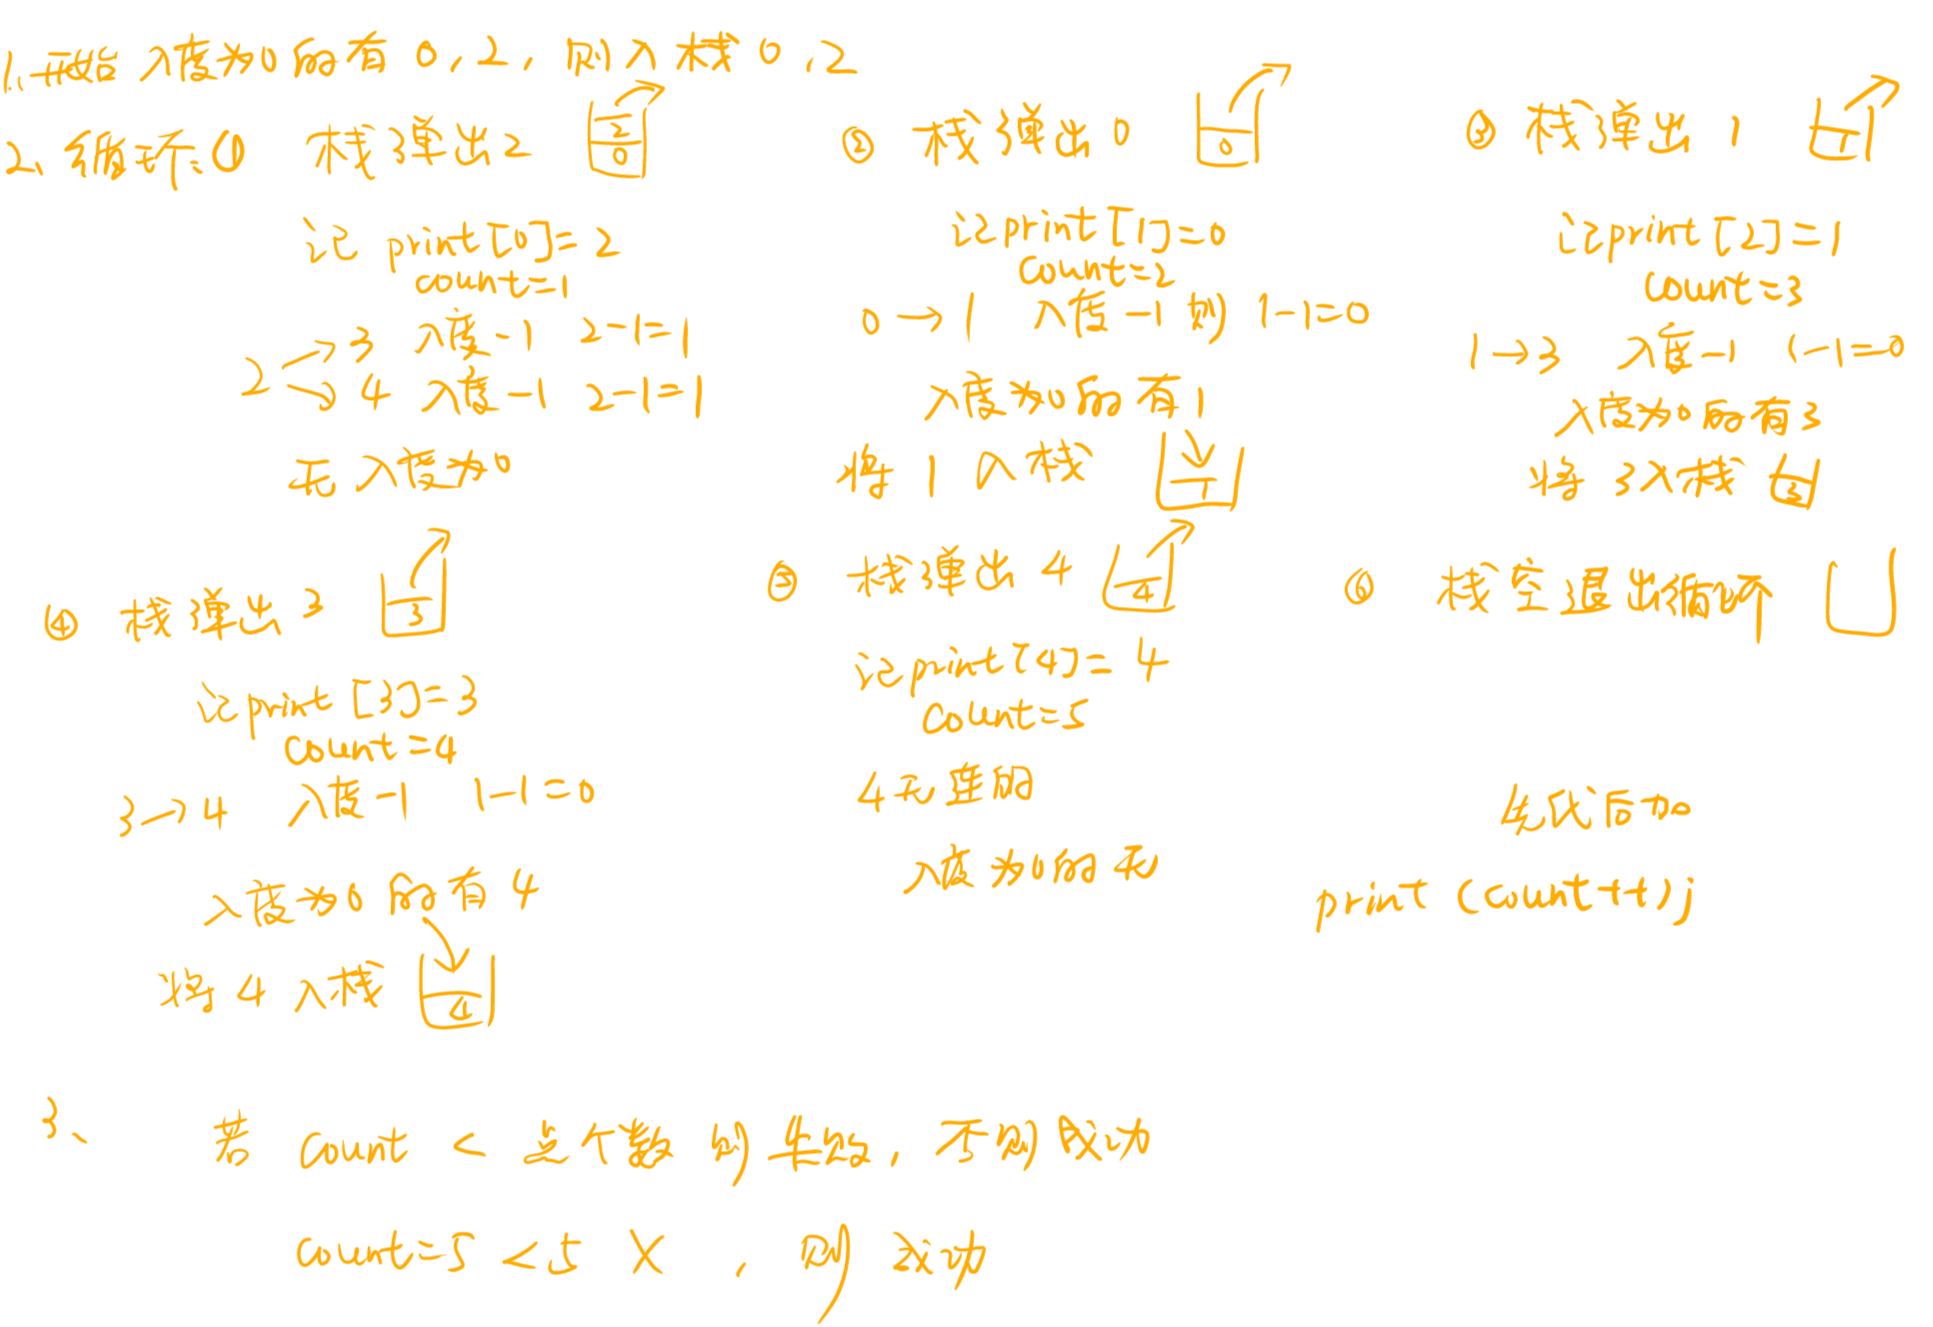 1、开始 入度为0的有 0,2,则入栈 0,2
2、循环:① 栈弹出2 2 0
记 print[0]=2
count=1
2 → 3 入度-1 2-1=1
→ 4 入度-1 2-1=1
无入度为0
② 栈弹出 0 0
记print[1]=0
count=2
0→1 入度-1 则 1-1=0
入度为0的有1
将 1 入栈 1
③ 栈弹出 1 1
记print[2]=1
count=3
1→3 入度-1 1-1=0
入度为0的有3
将 3入栈 3
④ 栈弹出 3 3
记print[3]=3
count=4
3→4 入度-1 1-1=0
入度为0的有4
将 4 入栈 4
⑤ 栈弹出 4 4
记print[4]=4
count=5
4无连的
入度为0的无
⑥ 栈空退出循环
先代后加
print (count++);
3、 若 count < 点个数 则 失败, 否则成功
count=5 <5 X , 则 成功